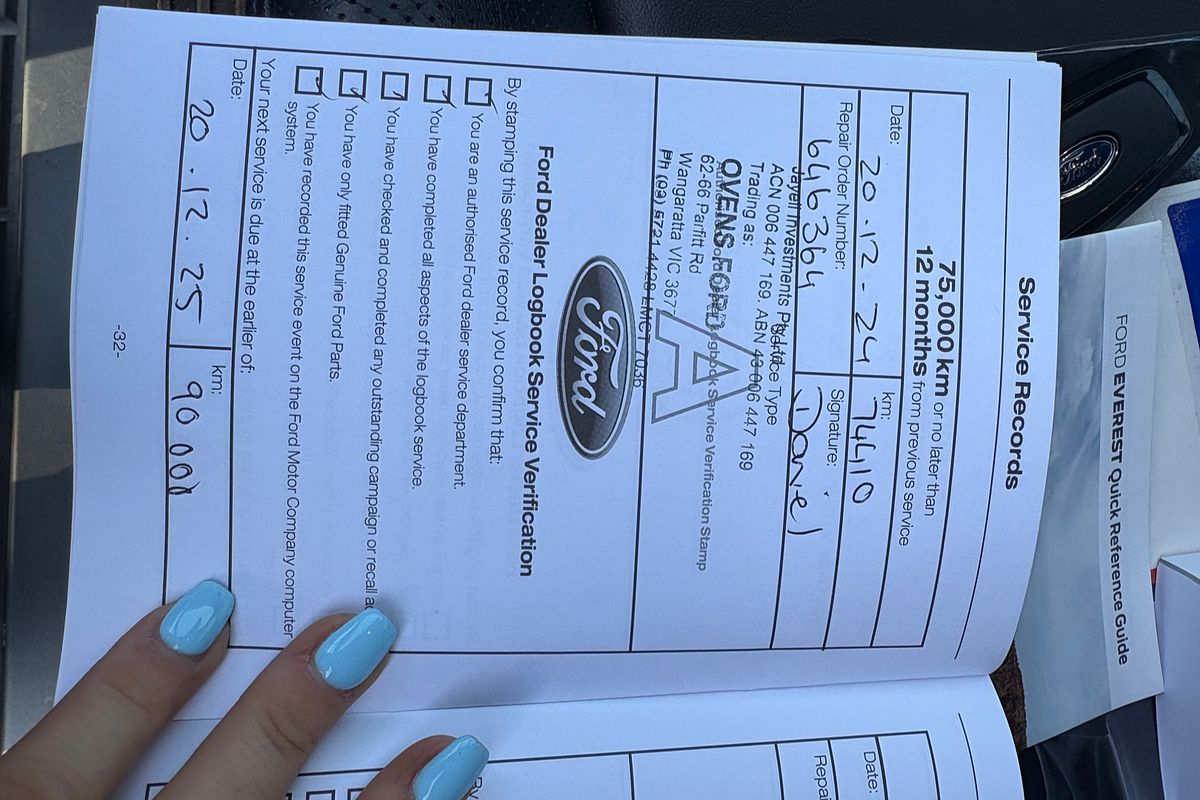 Service Records
75,000 km or no later than
12 months from previous service
Date:
20.12.24
km:
74410
Repair Order Number:
646364
Signature:
Daniel
Service Type
A
Jayell Investments Pty Ltd
ACN 006 447 169. ABN 43 006 447 169
Trading as:
OVENS FORD
62-66 Parfitt Rd
Wangaratta VIC 367
Ph (03) 5721 4428 LMCT 7036
Logbook Service Verification Stamp
Ford
Ford Dealer Logbook Service Verification
By stamping this service record, you confirm that:
You are an authorised Ford dealer service department.
You have completed all aspects of the logbook service.
You have checked and completed any outstanding campaign or recall
You have only fitted Genuine Ford Parts.
You have recorded this service event on the Ford Motor Company computer
system.
Your next service is due at the earlier of:
Date:
20.12.25
km:
90000
-32-
FORD EVEREST Quick Reference Guide
Ford
Date:
Repai
By